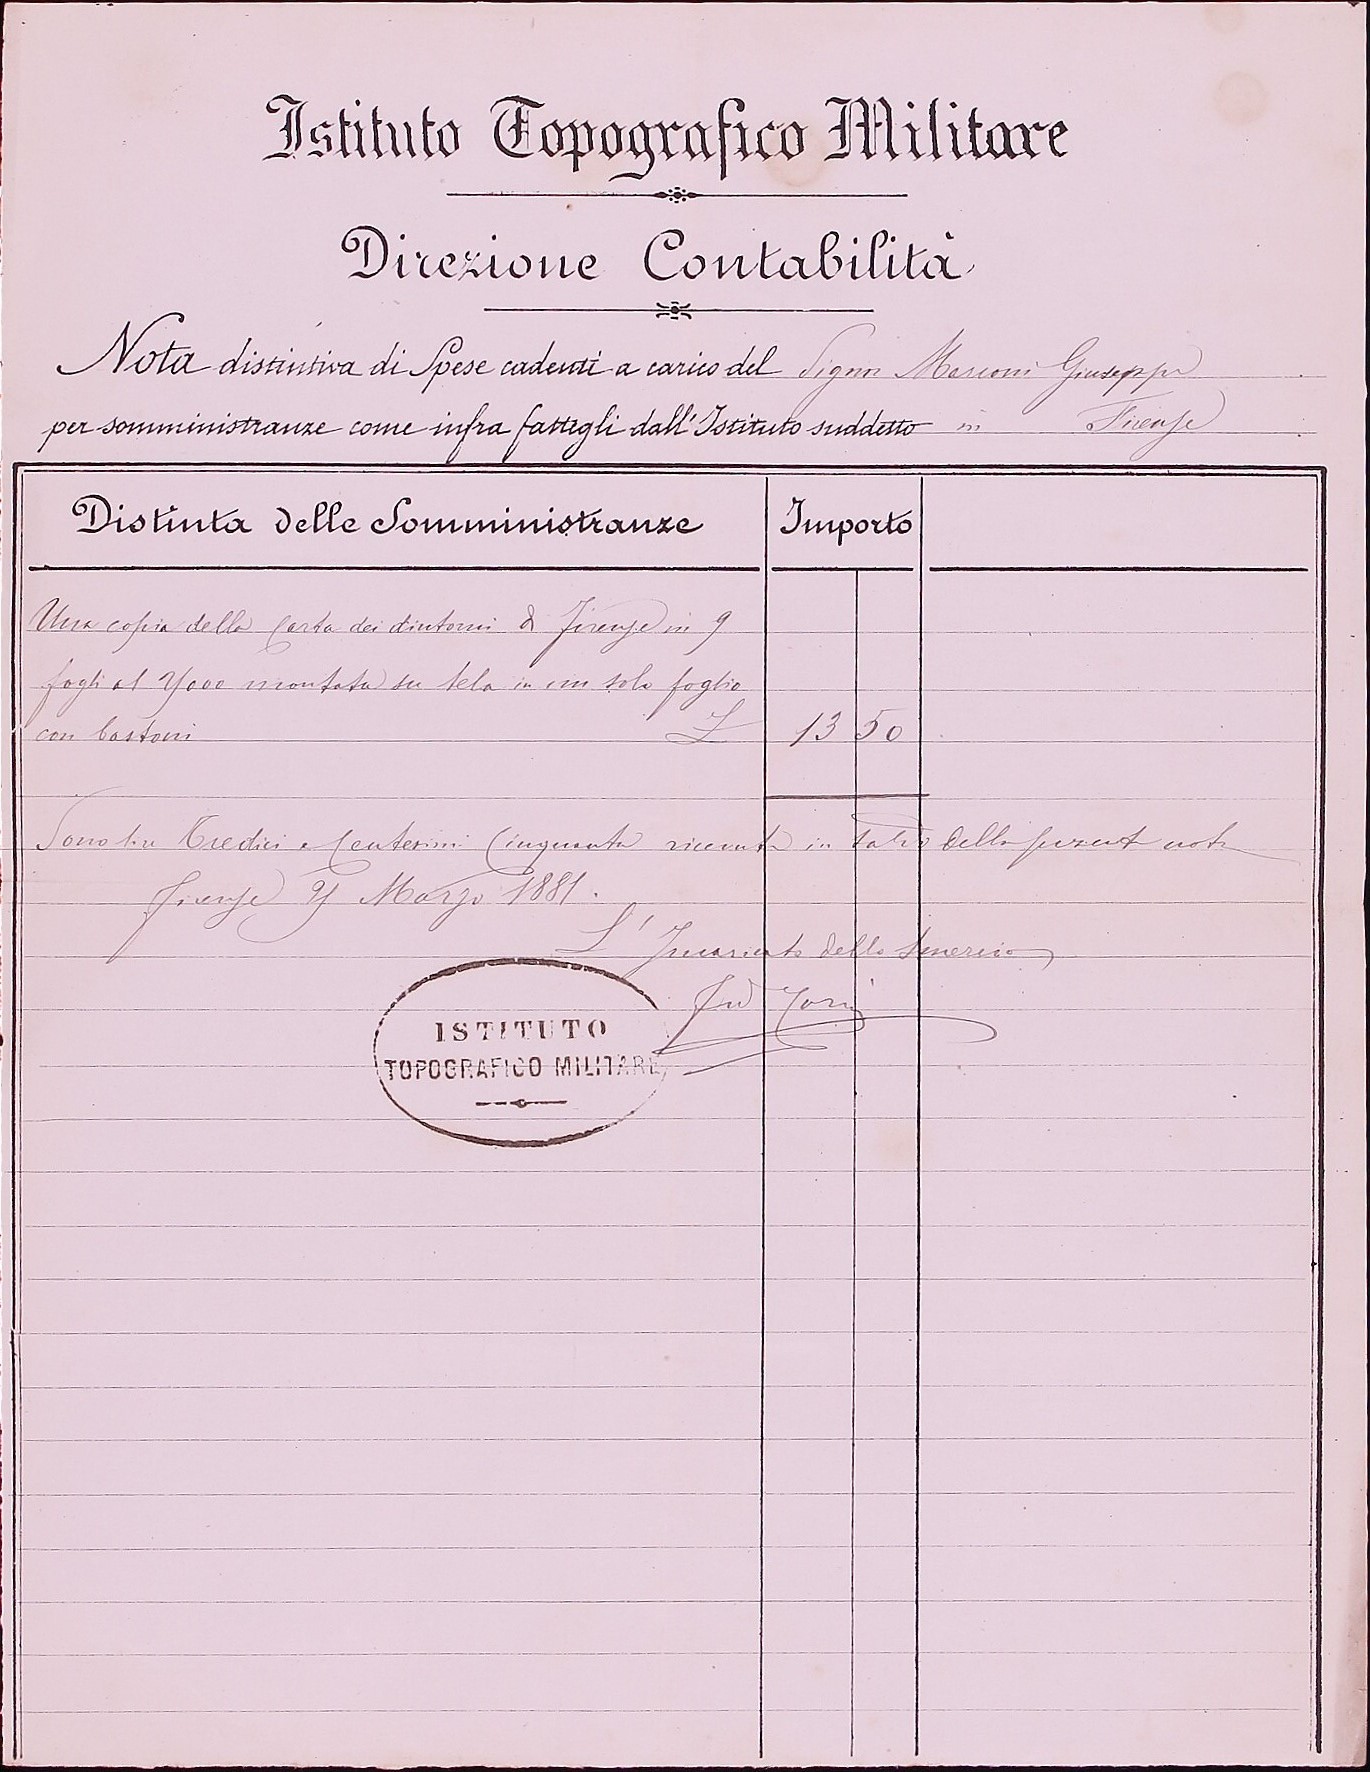 Istituto Topografico Militare
Direzione Contabilità
Nota distintiva di Spese cadenti a carico del Signor Marconi Giuseppe
per somministranze come infra fattegli dall'Istituto suddetto in Firenze
Distinta delle Somministranze Importo
Una copia della Carta dei dintorni di Firenze in 9
fogli al montata su tela in un solo foglio
con bastoni L 13 50
Sono lire Tredici e Centesimi Cinquanta ricevute in saldo della presente nota
Firenze Marzo 1881.
L'Incaricato dello Smercio
ISTITUTO
TOPOGRAFICO MILITARE